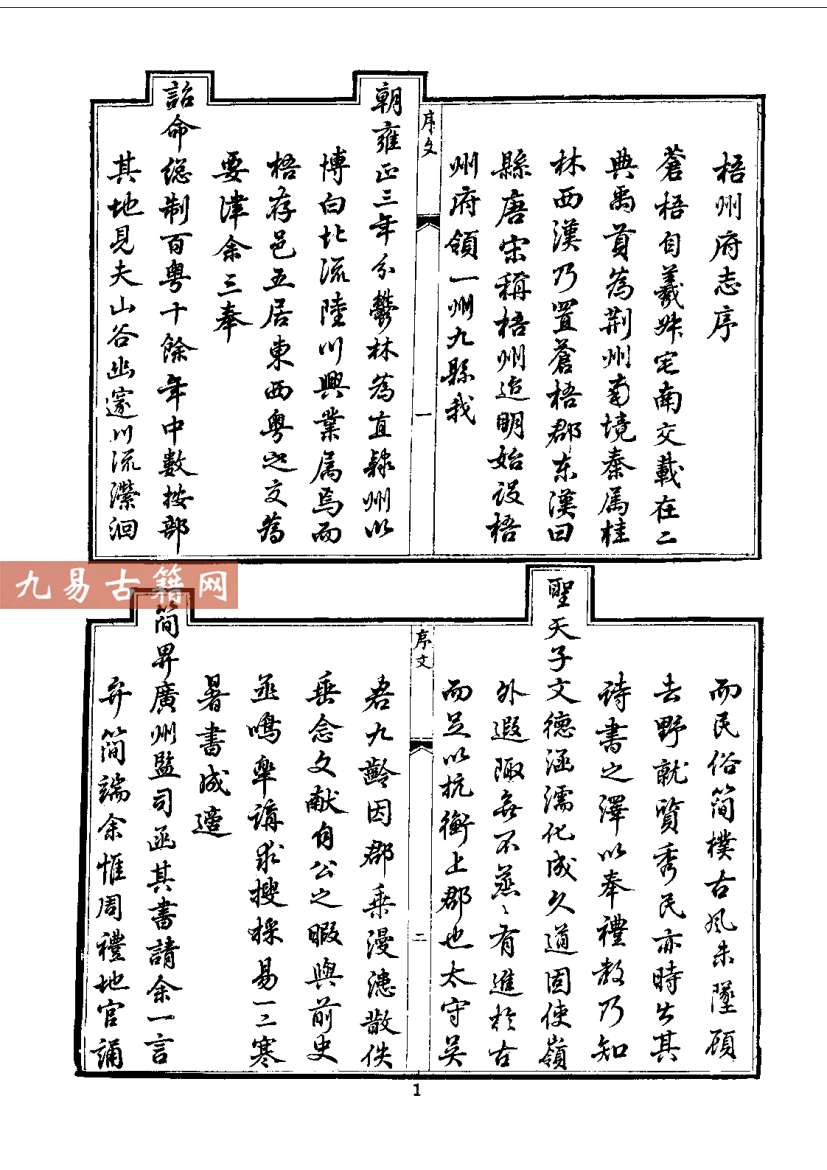 梧州府志序
蒼梧自羲姊宅南交載在二
典禹貢為荆州南境秦属桂
林西漢乃置蒼梧郡东漢曰
縣唐宋稱梧州迨明始设梧
州府領一州九縣我
序文
一
朝雍正三年分鬱林為直隸州以
博白北流陸川興業属焉而
梧存邑五居東西粤之交為
要津余三奉
詔命总制百粤十餘年中數按部
其地見夫山谷幽邃川流瀠洄
而民俗简樸古风未墜頋
去野就賢秀民亦時出其
诗書之澤以奉禮教乃知
聖天子文德涵濡化成久道固使嶺
外遐陬無不蒸〻有進於古
而足以抗衡上郡也太守吴
序文
二
君九齡因郡乗漫漶散佚
垂念文献自公之暇與前史
丞鳴皋講求搜採易一二寒
暑書成適
简畀廣州監司函其書請余一言
弁简端余惟周禮地官誦
九易古籍网
1